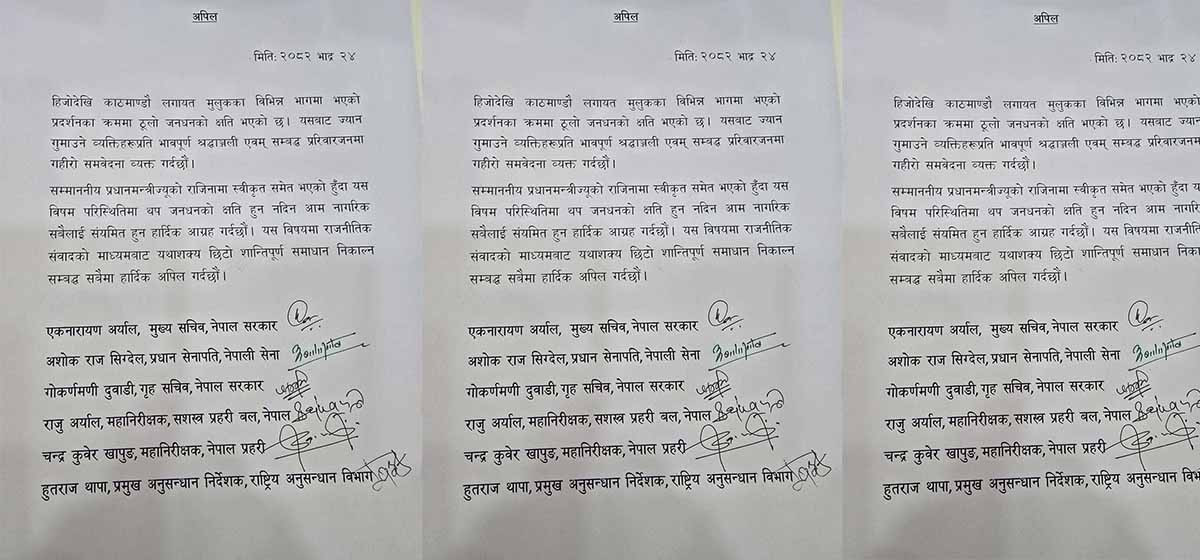 अपिल
मिति: २०८२ भाद्र २४
हिजोदेखि काठमाण्डौ लगायत मुलुकका विभिन्न भागमा भएको
प्रदर्शनका क्रममा ठूलो जनधनको क्षति भएको छ। यसबाट ज्यान
गुमाउने व्यक्तिहरूप्रति भावपूर्ण श्रद्धाञ्जली एवम् सम्बद्ध परिवारजनमा
गहीरो समवेदना व्यक्त गर्दछौं।
सम्माननीय प्रधानमन्त्रीज्यूको राजिनामा स्वीकृत समेत भएको हुँदा यस
बिषम परिस्थितिमा थप जनधनको क्षति हुन नदिन आम नागरिक
सबैलाई संयमित हुन हार्दिक आग्रह गर्दछौं। यस विषयमा राजनीतिक
संवादको माध्यमबाट यथाशक्य छिटो शान्तिपूर्ण समाधान निकाल्न
सम्बद्ध सबैमा हार्दिक अपिल गर्दछौं।
एकनारायण अर्याल, मुख्य सचिव, नेपाल सरकार
अशोक राज सिग्देल, प्रधान सेनापति, नेपाली सेना
गोकर्णमणी दुवाडी, गृह सचिव, नेपाल सरकार
राजु अर्याल, महानिरीक्षक, सशस्त्र प्रहरी बल, नेपाल
चन्द्र कुवेर खापुङ, महानिरीक्षक, नेपाल प्रहरी
हुतराज थापा, प्रमुख अनुसन्धान निर्देशक, राष्ट्रिय अनुसन्धान विभाग
अपिल
मिति: २०८२ भाद्र २४
हिजोदेखि काठमाण्डौ लगायत मुलुकका विभिन्न भागमा भएको
प्रदर्शनका क्रममा ठूलो जनधनको क्षति भएको छ। यसबाट ज्यान
गुमाउने व्यक्तिहरूप्रति भावपूर्ण श्रद्धाञ्जली एवम् सम्बद्ध परिवारजनमा
गहीरो समवेदना व्यक्त गर्दछौं।
सम्माननीय प्रधानमन्त्रीज्यूको राजिनामा स्वीकृत समेत भएको हुँदा यस
बिषम परिस्थितिमा थप जनधनको क्षति हुन नदिन आम नागरिक
सबैलाई संयमित हुन हार्दिक आग्रह गर्दछौं। यस विषयमा राजनीतिक
संवादको माध्यमबाट यथाशक्य छिटो शान्तिपूर्ण समाधान निकाल्न
सम्बद्ध सबैमा हार्दिक अपिल गर्दछौं।
एकनारायण अर्याल, मुख्य सचिव, नेपाल सरकार
अशोक राज सिग्देल, प्रधान सेनापति, नेपाली सेना
गोकर्णमणी दुवाडी, गृह सचिव, नेपाल सरकार
राजु अर्याल, महानिरीक्षक, सशस्त्र प्रहरी बल, नेपाल
चन्द्र कुवेर खापुङ, महानिरीक्षक, नेपाल प्रहरी
हुतराज थापा, प्रमुख अनुसन्धान निर्देशक, राष्ट्रिय अनुसन्धान विभाग
अपिल
मिति: २०८२ भाद्र २४
हिजोदेखि काठमाण्डौ लगायत मुलुकका विभिन्न भागमा भएको
प्रदर्शनका क्रममा ठूलो जनधनको क्षति भएको छ। यसबाट ज्यान
गुमाउने व्यक्तिहरूप्रति भावपूर्ण श्रद्धाञ्जली एवम् सम्बद्ध परिवारजनमा
गहीरो समवेदना व्यक्त गर्दछौं।
सम्माननीय प्रधानमन्त्रीज्यूको राजिनामा स्वीकृत समेत भएको हुँदा
बिषम परिस्थितिमा थप जनधनको क्षति हुन नदिन आम
सबैलाई संयमित हुन हार्दिक आग्रह गर्दछौं। यस विषयमा
संवादको माध्यमबाट यथाशक्य छिटो शान्तिपूर्ण समाधान
सम्बद्ध सबैमा हार्दिक अपिल गर्दछौं।
एकनारायण अर्याल, मुख्य सचिव, नेपाल सरकार
अशोक राज सिग्देल, प्रधान सेनापति, नेपाली सेना
गोकर्णमणी दुवाडी, गृह सचिव, नेपाल सरकार
राजु अर्याल, महानिरीक्षक, सशस्त्र प्रहरी बल, नेपाल
चन्द्र कुवेर खापुङ, महानिरीक्षक, नेपाल प्रहरी
हुतराज थापा, प्रमुख अनुसन्धान निर्देशक, राष्ट्रिय अनुसन्धान